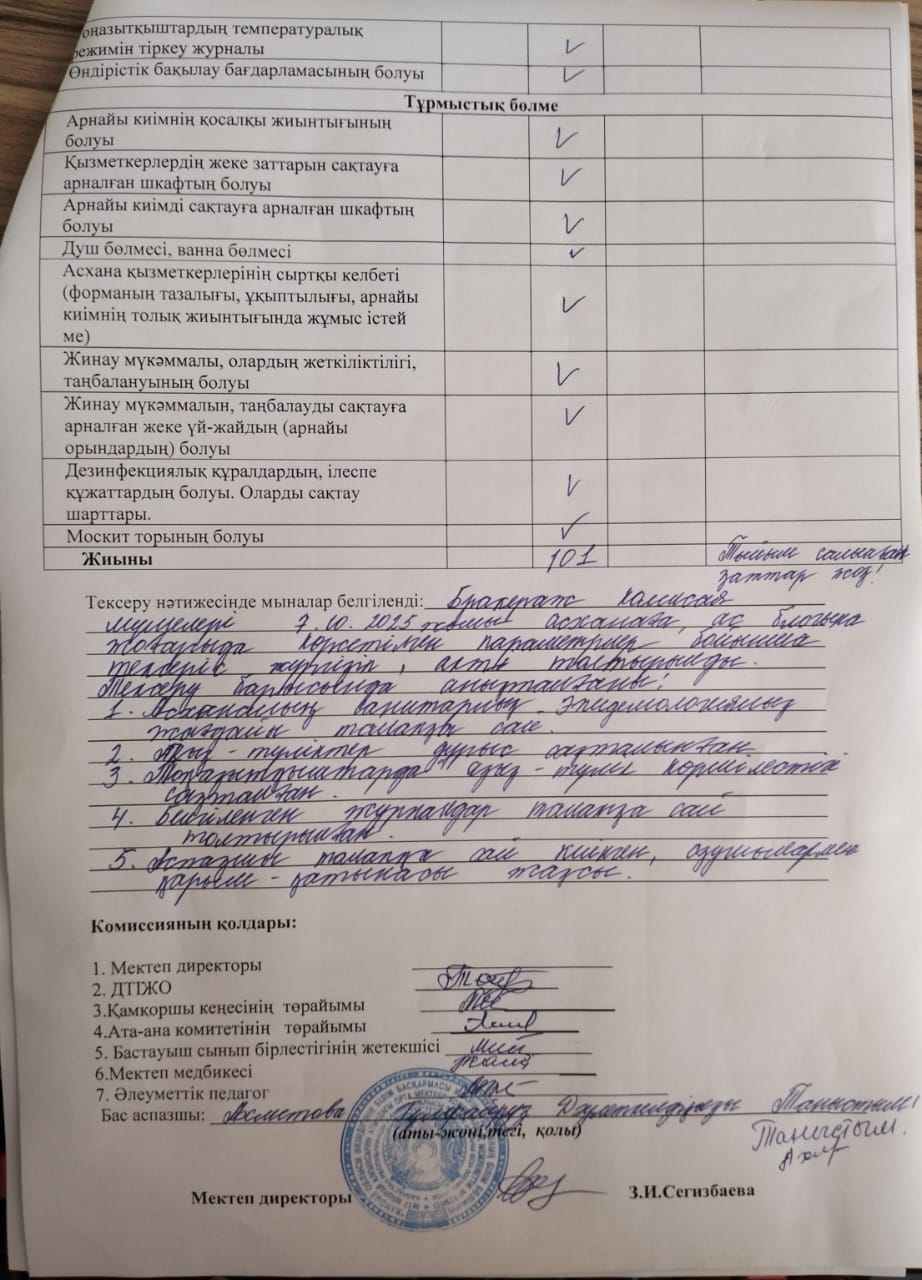 оңазытқыштардың температуралық
режимін тіркеу журналы ✓
Өндірістік бақылау бағдарламасының болуы ✓
Тұрмыстық бөлме
Арнайы киімнің қосалқы жиынтығының
болуы ✓
Қызметкерлердің жеке заттарын сақтауға
арналған шкафтың болуы ✓
Арнайы киімді сақтауға арналған шкафтың
болуы ✓
Душ бөлмесі, ванна бөлмесі ✓
Асхана қызметкерлерінің сыртқы келбеті
(форманың тазалығы, ұқыптылығы, арнайы
киімнің толық жиынтығында жұмыс істей ✓
ме)
Жинау мүкәммалы, олардың жеткіліктілігі,
таңбалануының болуы ✓
Жинау мүкәммалын, таңбалауды сақтауға
арналған жеке үй-жайдың (арнайы ✓
орындардың) болуы
Дезинфекциялық құралдардың, ілеспе
құжаттардың болуы. Оларды сақтау ✓
шарттары.
Москит торының болуы ✓
Жиыны 101 Тыйым салынған
заттар жоқ!
Тексеру нәтижесінде мыналар белгіленді: Бракераж комиссия
мүшелері 7.10.2025 асханаға, ас блогына
жоғарыда көрсетілген параметрлер бойынша
тексеріс жүргізіп, акты толтырылды.
Тексеру барысында анықталғаны:
1. Асхананың санитарлық-эпидемологиялық
жағдайы талапқа сай.
2. Азық-түліктер дұрыс сақталынған
3. Тоңазытқыштарда азық-түлік көршілестігі
сақталған.
4. Белгіленген журналдар талапқа сай
толтырылған.
5. Аспазшы талапқа сай киінген, оқушылармен
қарым-қатынасы жақсы.
Комиссияның қолдары:
1. Мектеп директоры
2. ДТІЖО
3.Қамқоршы кеңесінің төрайымы
4.Ата-ана комитетінің төрайымы
5. Бастауыш сынып бірлестігінің жетекшісі
6.Мектеп медбикесі
7. Әлеуметтік педагог
Бас аспазшы: Ахметова Таныстым!
(аты-жөні,тегі, қолы) Таныстым.
Мектеп директоры З.И.Сегизбаева